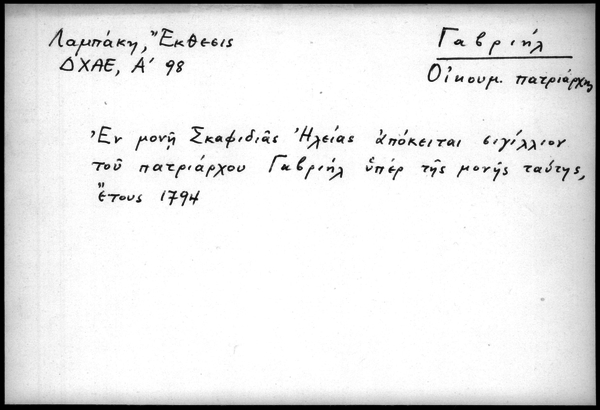 Λαμπάκη, Ἔκθεσις
ΔΧΑΕ, Α' 98
Γαβριήλ
Οἰκουμ. πατριάρχης
Ἐν μονῇ Σκαφιδιᾶς Ἠλείας ἀπόκειται σιγίλλιον
τοῦ πατριάρχου Γαβριήλ ὑπέρ τῆς μονῆς ταύτης,
ἔτους 1794